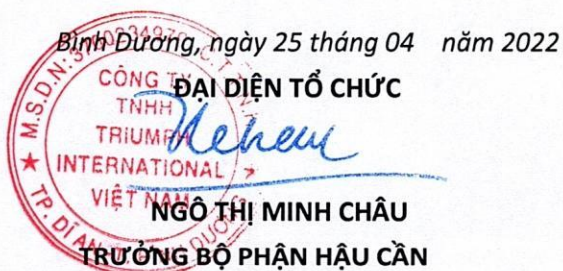 Bình Dương, ngày 25 tháng 04 năm 2022
ĐẠI DIỆN TỔ CHỨC
CÔNG TY
TNHH
TRIUMPH
INTERNATIONAL
VIỆT NAM
M.S.D.N:
TP. DĨ AN
NGÔ THỊ MINH CHÂU
TRƯỞNG BỘ PHẬN HẬU CẦN